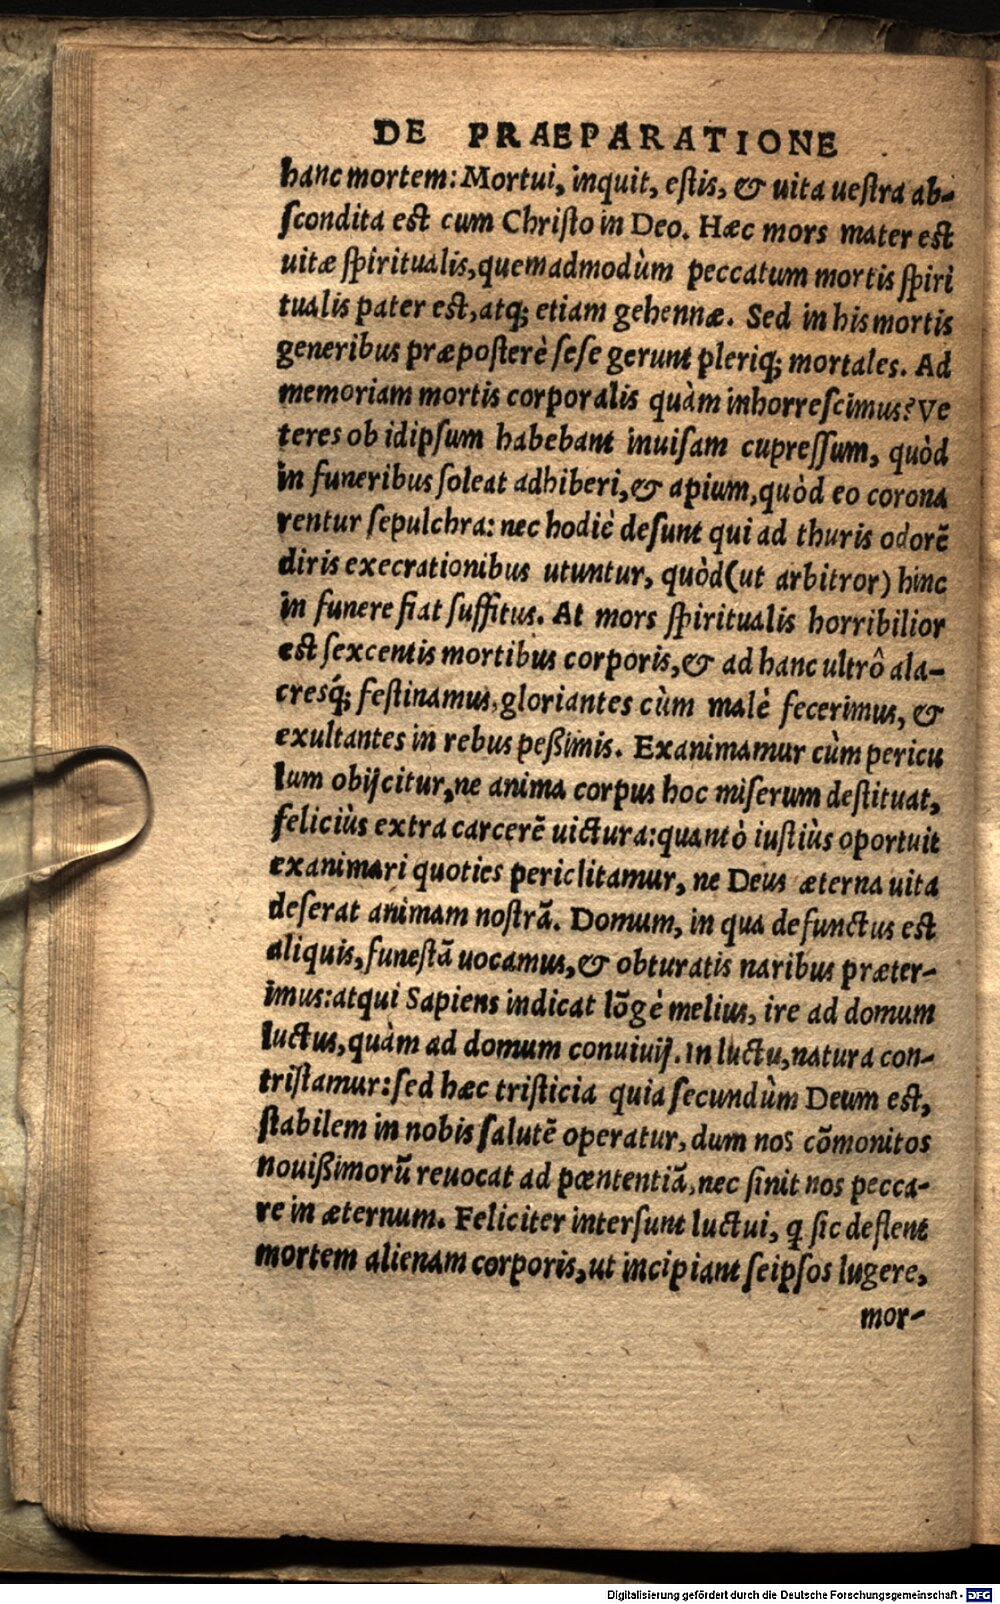 DE PRAEPARATIONE
hanc mortem: Mortui, inquit, eſtis, & uita ueſtra ab-
ſcondita eſt cum Chriſto in Deo. Hæc mors mater eſt
uitæ ſpiritualis, quemadmodùm peccatum mortis ſpiri
tualis pater eſt, atq; etiam gehennæ. Sed in his mortis
generibus præpoſterè ſeſe gerunt pleriq; mortales. Ad
memoriam mortis corporalis quàm inhorreſcimus? Ve
teres ob idipſum habebant inuiſam cupreſſum, quòd
in funeribus ſoleat adhiberi, & apium, quòd eo corona
rentur ſepulchra: nec hodiè deſunt qui ad thuris odorē
diris execrationibus utuntur, quòd (ut arbitror) hinc
in funere fiat ſuffitus. At mors ſpiritualis horribilior
eſt ſexcentis mortibus corporis, & ad hanc ultrô ala-
cresq́; feſtinamus, gloriantes cùm malè fecerimus, &
exultantes in rebus peßimis. Exanimamur cùm pericu
lum obijcitur, ne anima corpus hoc miſerum deſtituat,
feliciùs extra carcerē uictura: quantò iuſtiùs oportuit
exanimari quoties periclitamur, ne Deus æterna uita
deſerat animam noſtrā. Domum, in qua defunctus eſt
aliquis, funeſtā uocamus, & obturatis naribus præter-
imus: atqui Sapiens indicat lōgè melius, ire ad domum
luctus, quàm ad domum conuiuij. In luctu, natura con-
triſtamur: ſed hæc triſticia quia ſecundùm Deum eſt,
ſtabilem in nobis ſalutē operatur, dum nos cōmonitos
nouißimorū reuocat ad pœntentiā, nec ſinit nos pecca-
re in æternum. Feliciter interſunt luctui, q ſic deflent
mortem alienam corporis, ut incipiant ſeipſos lugere,
mor-
Digitalisierung gefördert durch die Deutsche Forschungsgemeinschaft - DFG